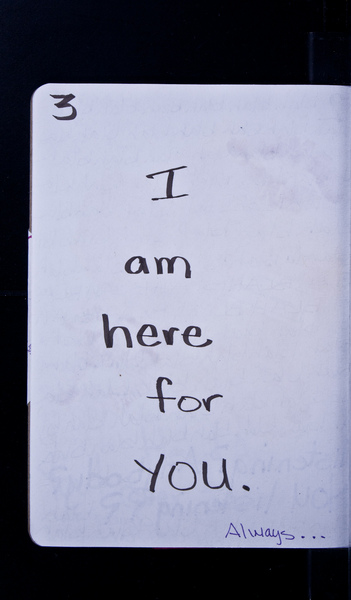 3
I
am
here
for
you.
Always...